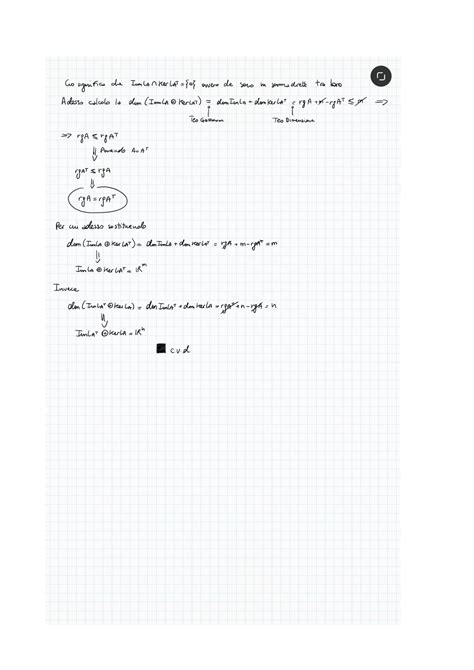 Ciò significa che Im LA ∩ Ker LAᵀ = {0} ovvero che sono in somma diretta tra loro
Adesso calcolo la dim (Im LA ⊕ Ker LAᵀ) = dim Im LA + dim Ker LAᵀ = rg A + m - rg Aᵀ ≤ m ⇒
Teo Grassmann Teo Dimensione
⇒ rg A ≤ rg Aᵀ
⇓ Ponendo A = Aᵀ
rg Aᵀ ≤ rg A
⇓
rg A = rg Aᵀ
Per cui adesso sostituendo
dim (Im LA ⊕ Ker LAᵀ) = dim Im LA + dim Ker LAᵀ = rg A + m - rg Aᵀ = m
⇓
Im LA ⊕ Ker LAᵀ = ℝᵐ
Invece
dim (Im LAᵀ ⊕ Ker LA) = dim Im LAᵀ + dim Ker LA = rg Aᵀ + n - rg A = n
⇓
Im LAᵀ ⊕ Ker LA = ℝⁿ
■ c v d